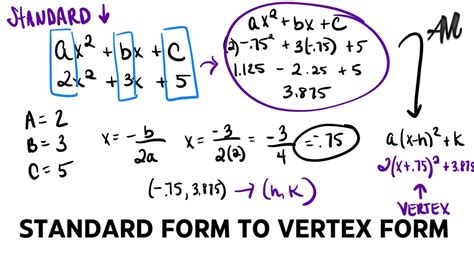 STANDARD ↓
ax² + bx + C
2x² + 3x + 5
ax² + bx + C
(2) -.75² + 3(-.75) + 5
1.125 - 2.25 + 5
3.875
AM
A = 2
B = 3
C = 5
x = -b/2a
x = -3/2(2) = -3/4 = -.75
a(x-h)² + k
2(x+.75)² + 3.875
↑
VERTEX
(-.75, 3.875) → (h, K)
STANDARD FORM TO VERTEX FORM